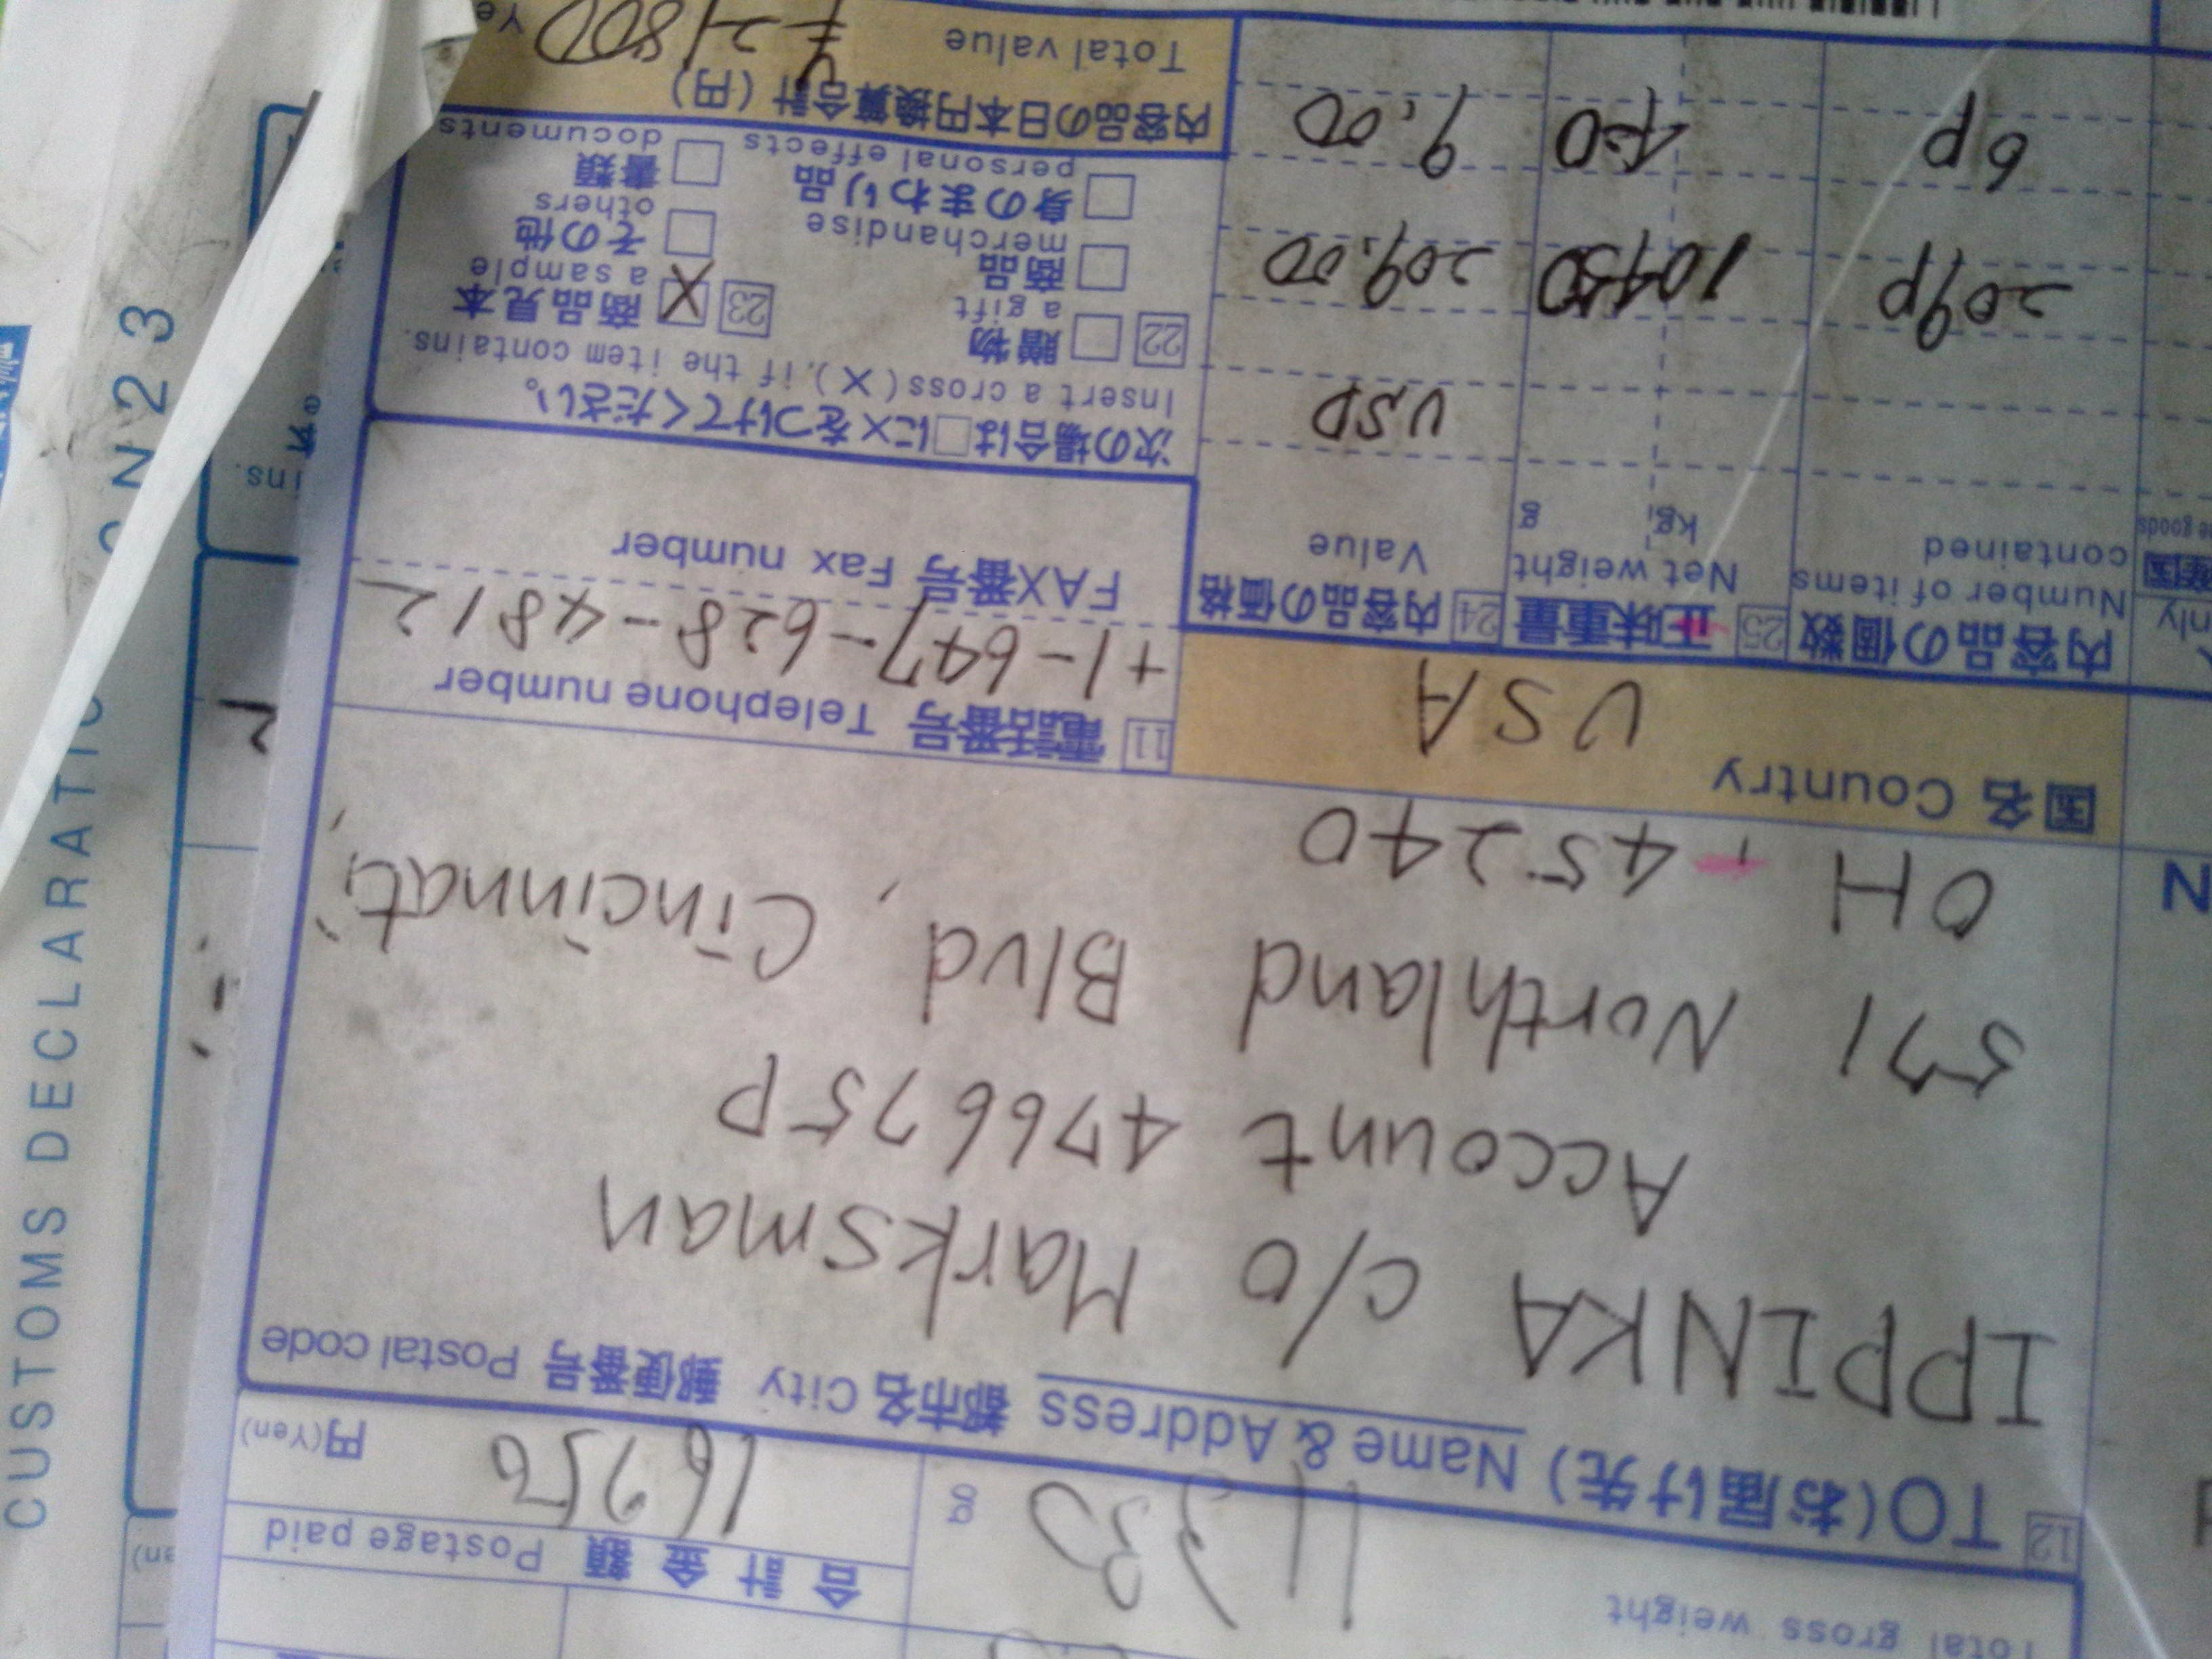 Total gross weight
11,330 g
合計金額 Postage paid
16750 円(Yen)
12 TO(お届け先) Name & Address 都市名 City 郵便番号 Postal code
IPPINKA c/o Marksman
Account 476675P
571 Northland Blvd, Cincinnati,
OH, 45240
国名 Country USA
11 電話番号 Telephone number
+1-647-628-4812
FAX番号 Fax number
内容品の個数
Number of items
contained
25 正味重量
Net weight
kg g
24 内容品の価格
Value
USD
209p 10450 209.00
6p 420 9.00
次の場合は□に×をつけてください。
Insert a cross (×), if the item contains.
22 贈物
a gift
23 商品見本
a sample
商品
merchandise
その他
others
身のまわり品
personal effects
書類
documents
内容品の日本円換算合計(円)
Total value ¥21800 Ye
CUSTOMS DECLARATIO CN23